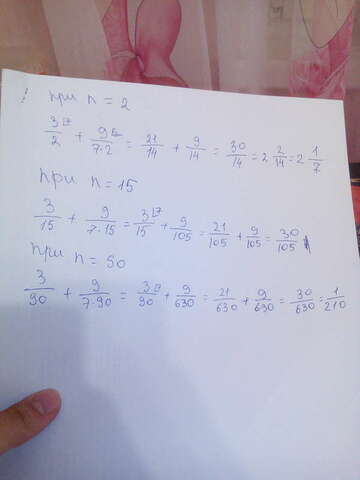 при n = 2
3/2 + 9/7·2 = 21/14 + 9/14 = 30/14 = 2 2/14 = 2 1/7
при n = 15
3/15 + 9/7·15 = 3/15 + 9/105 = 21/105 + 9/105 = 30/105
при n = 90
3/90 + 9/7·90 = 3/90 + 9/630 = 21/630 + 9/630 = 30/630 = 1/210